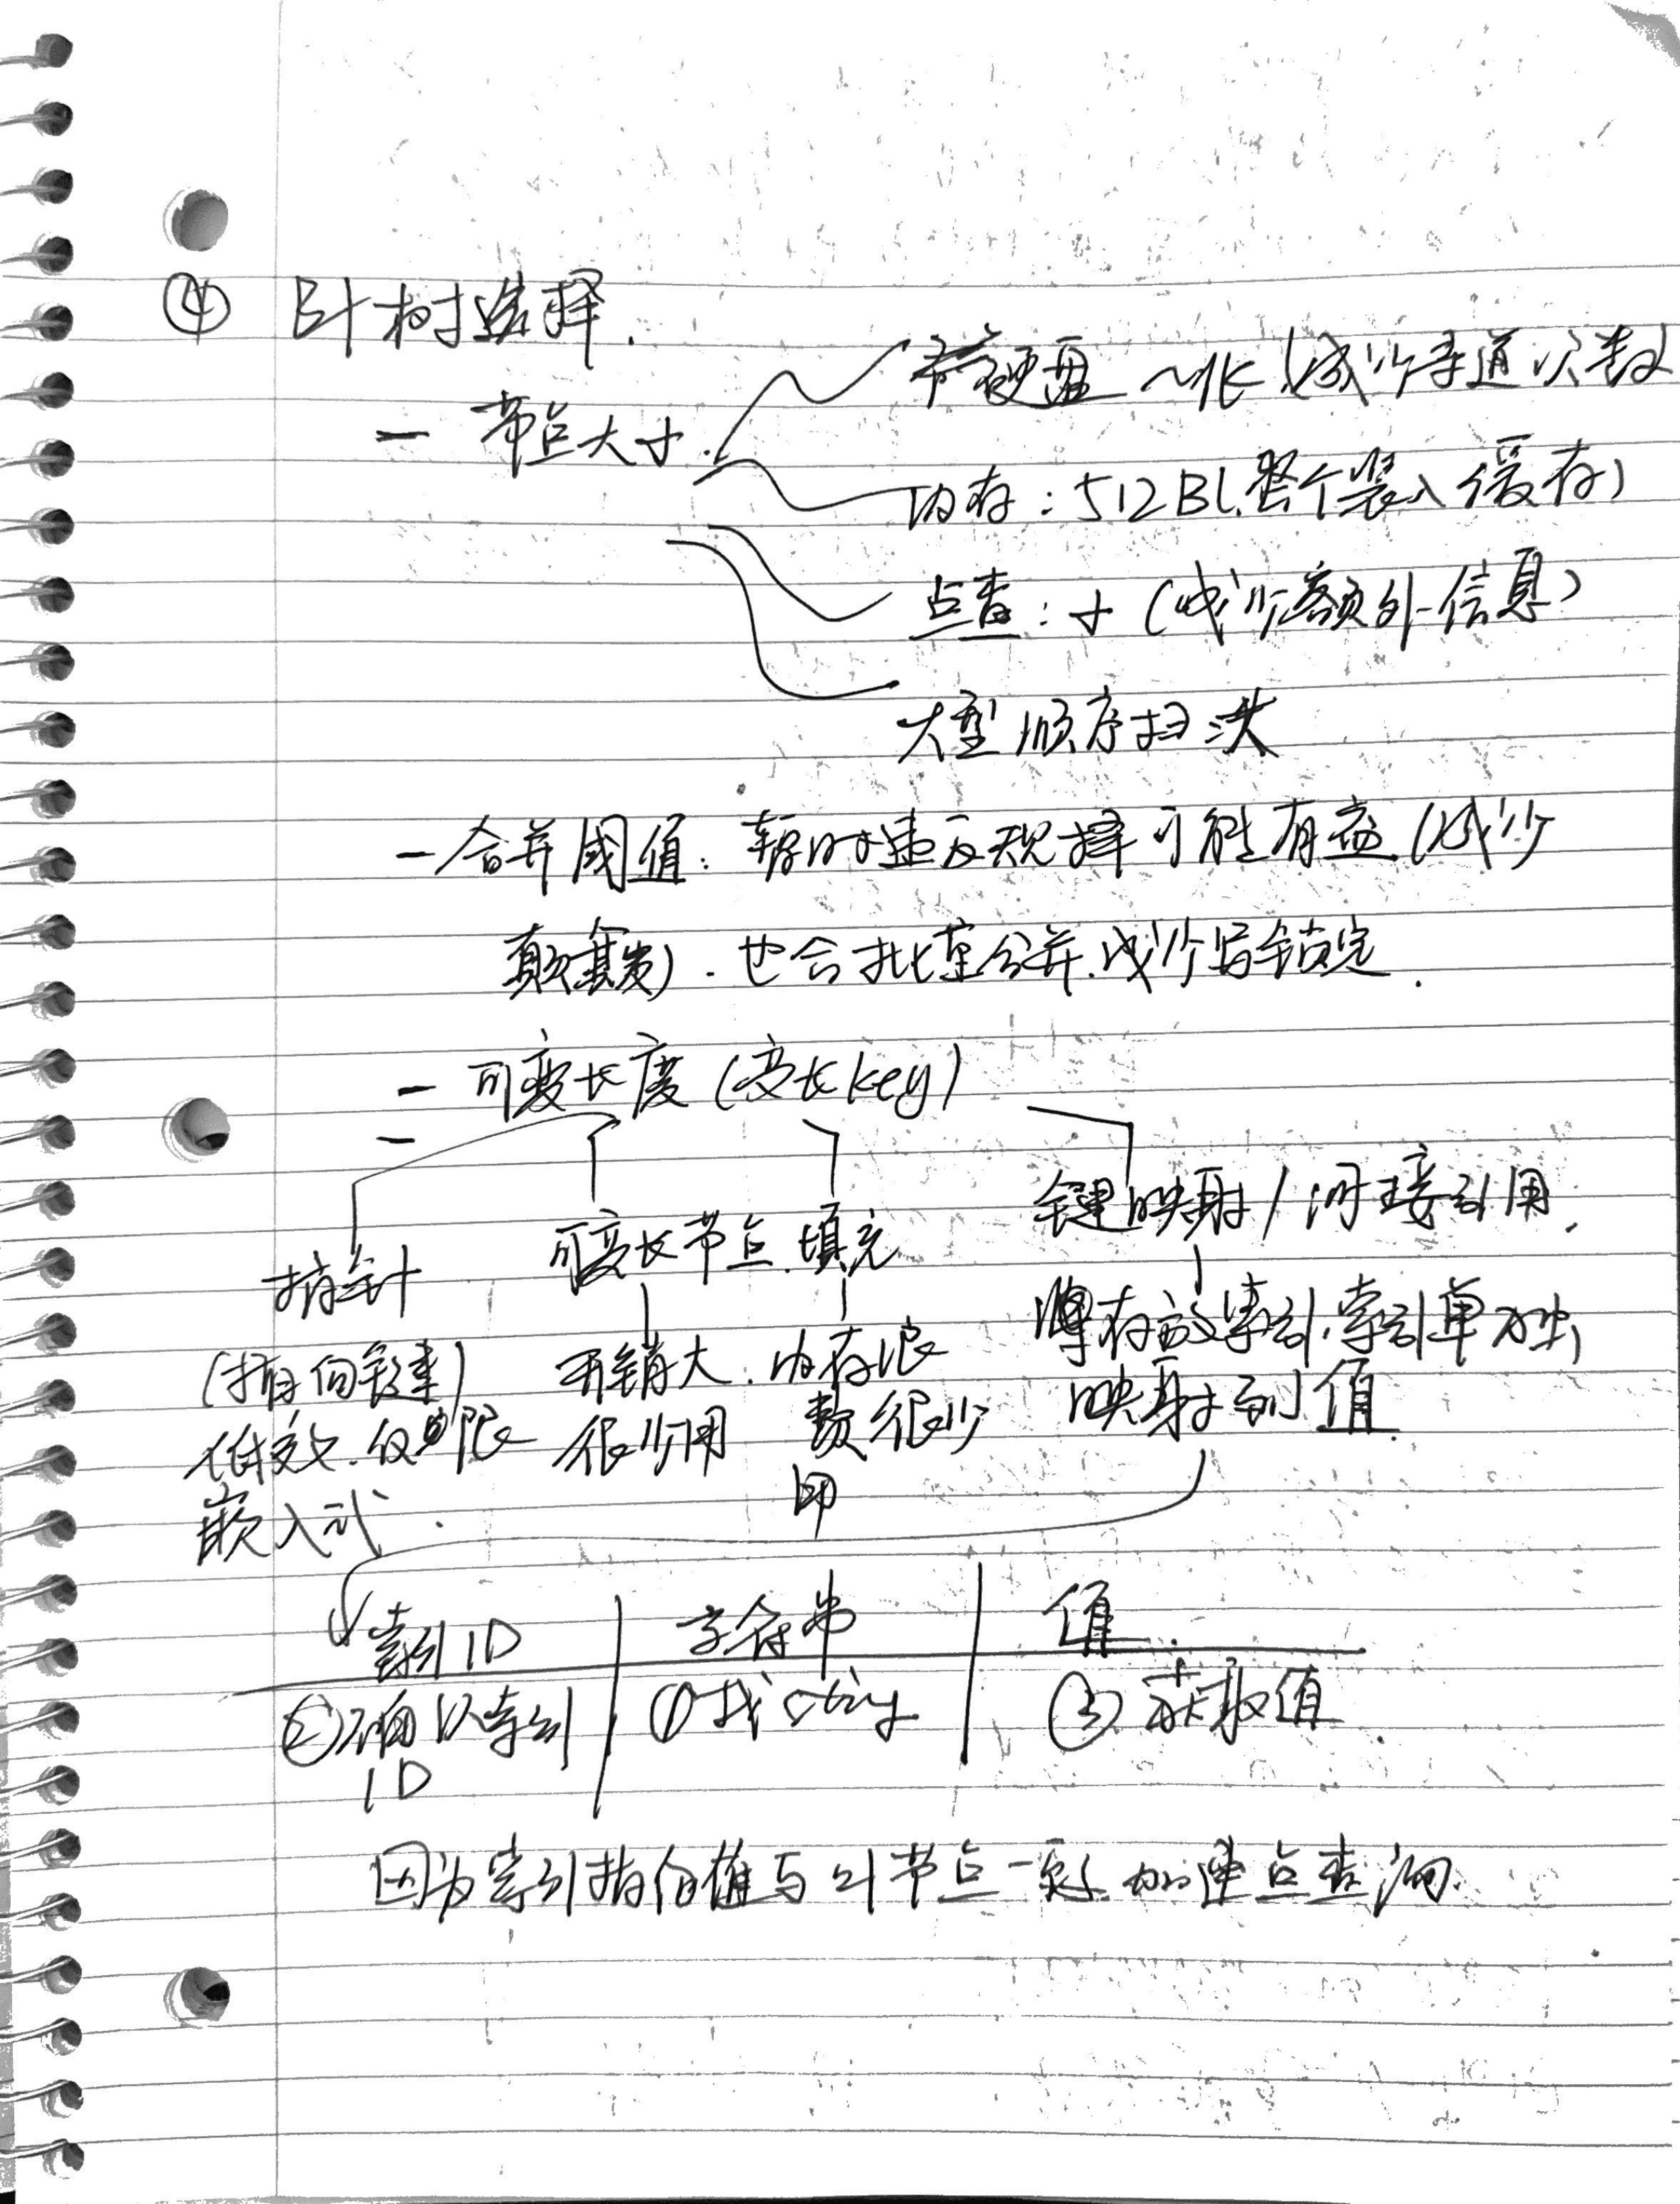 ④ B+树选择.
硬盘 ~1K (减少寻道次数
- 节点大小.
内存：512B(整个装入缓存)
点查：小 (减少额外信息)
大型顺序扫
- 合并阈值：暂时违反规择可能有益 (减少
颠簸). 也会批量合并.减少写锁定.
- 可变长度 (变长key)
-
键映射 / 间接引用.
指针 可变长节点. 填充
存放索引,索引单独
(指向键) 开销大. 内存浪
低效.仅限 很少用 费 很少 映射到值.
嵌入式. 用
索引ID | 字符串 | 值.
②确认索引 | ①找 string | ③ 获取值.
ID
因为索引指向值与叶节点一致. 加速点查询.